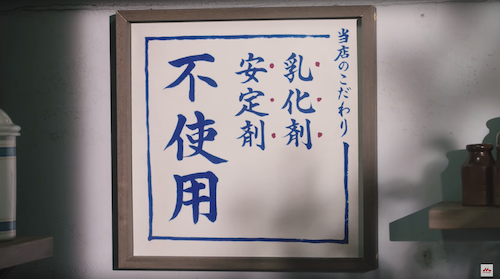 当店のこだわり
乳化剤
安定剤
不使用